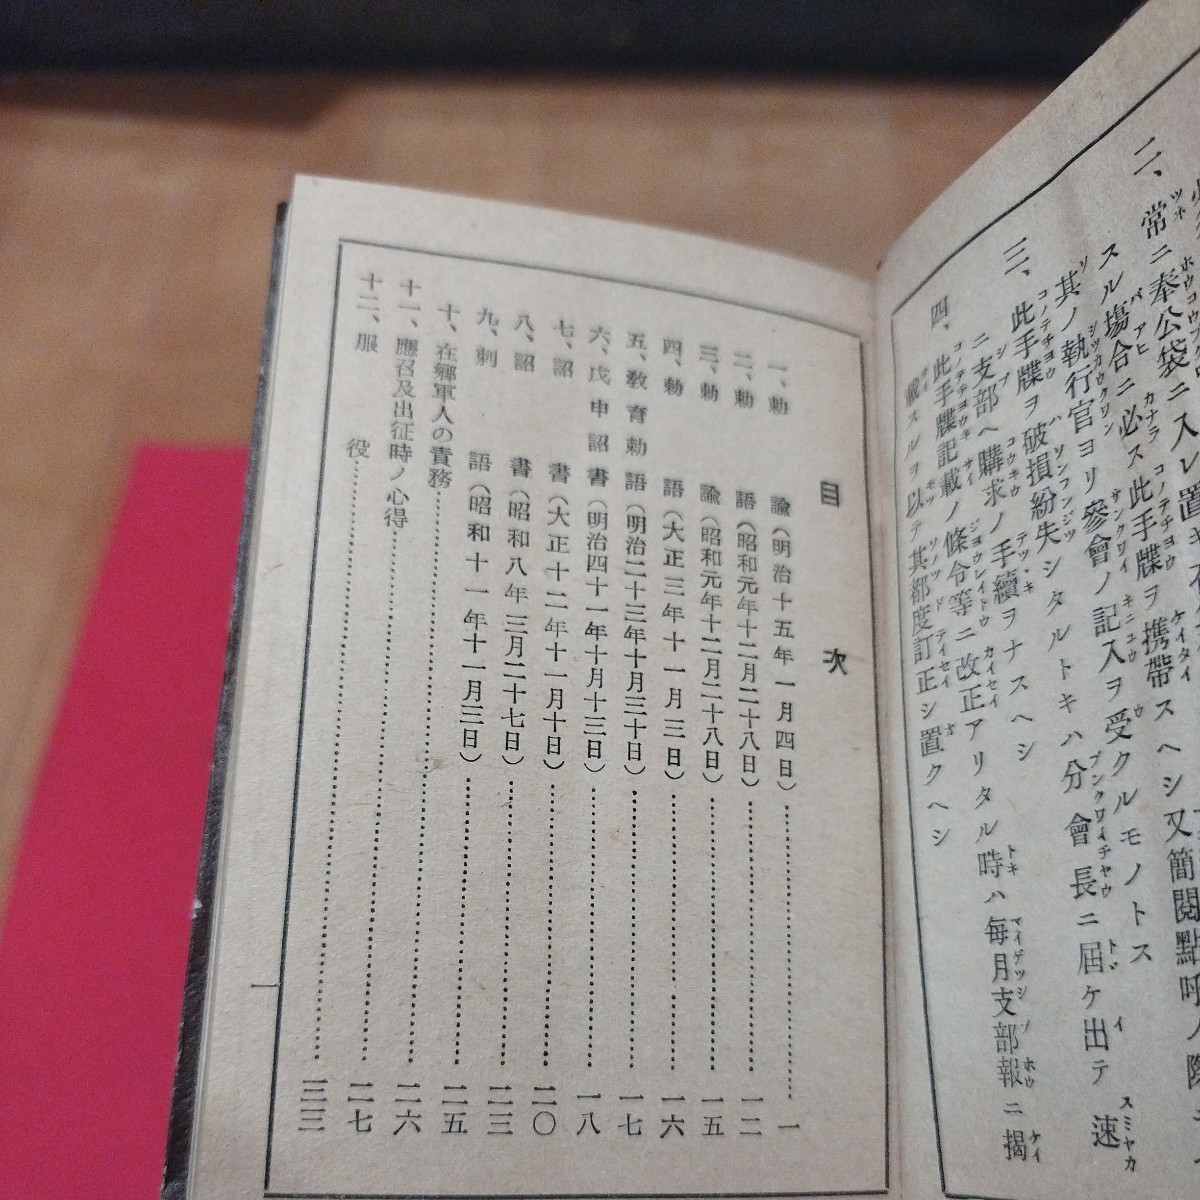 二、常ニ奉公袋ニ入レ置キ
スル塲合ニ必ス此手牒ヲ携帶スヘシ又簡閱點呼ノ際
其ノ執行官ヨリ參會ノ記入ヲ受クルモノトス
三、此手牒ヲ破損紛失シタルトキハ分會長ニ屆ケ出テ速
ニ支部ヘ購求ノ手續ヲナスヘシ
四、此手牒記載ノ條令等ニ改正アリタル時ハ每月支部報ニ揭
載スルヲ以テ其都度訂正シ置クヘシ
目次
一、勅諭(明治十五年一月四日)……一
二、勅語(昭和元年十二月二十八日)……一二
三、勅諭(昭和元年十二月二十八日)……一五
四、勅語(大正三年十一月三日)……一六
五、敎育勅語(明治二十三年十月三十日)……一七
六、戊申詔書(明治四十一年十月十三日)……一八
七、詔書(大正十二年十一月十日)……二〇
八、詔書(昭和八年三月二十七日)……二三
九、刺語(昭和十一年十一月三日)……二五
十、在鄕軍人の責務……二六
十一、應召及出征時ノ心得……二七
十二、服役……三三
一